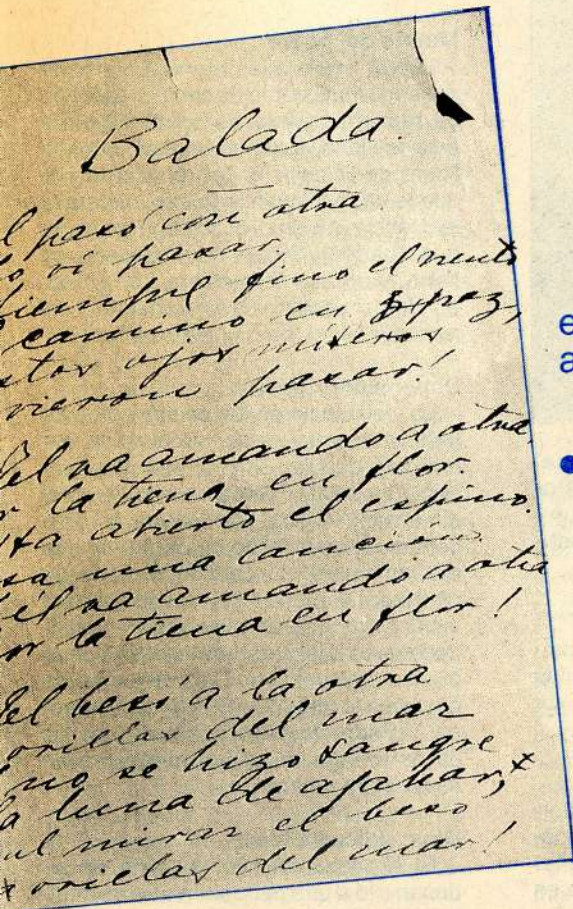 Balada.
l pasó con otra
o ví pasar.
Siempre fino el viento
camino en paz,
stos ojos míseros
vieron pasar!
El va amando a otra
r la tierra en flor.
sta abierto el espino.
sa una canción.
él va amando a otra
or la tierra en flor!
El besó a la otra
orillas del mar
no se hizo sangre
a luna de azahar,
al mirar el beso
orillas del mar!
e
a